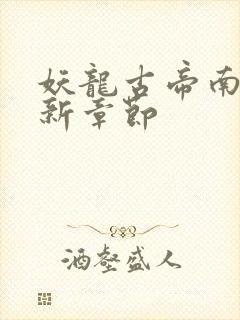 妖龍古帝南
新章節
酒壑盛人